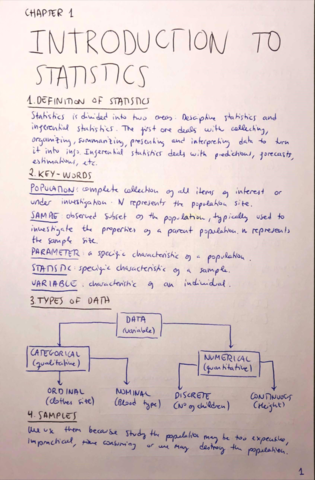 CHAPTER 1
INTRODUCTION TO
STATISTICS
1. DEFINITION OF STATISTICS
Statistics is divided into two areas. Descriptive statistics and
inferential statistics. The first one deals with collecting,
organizing, summarizing, presenting and interpreting data to turn
it into info. Inferential statistics deals with predictions, forecasts,
estimations, etc.
2. KEY-WORDS
POPULATION: complete collection of all items of interest or
under investigation. N represents the population size.
SAMPLE observed subset of the population, typically used to
investigate the properties of a parent population. n represents
the sample size.
PARAMETER: a specific characteristic of a population.
STATISTIC: specific characteristic of a sample.
VARIABLE: characteristic of an individual.
3. TYPES OF DATA
DATA
(variable)
CATEGORICAL
(qualitative)
NUMERICAL
(quantitative)
ORDINAL
(clothes size)
NOMINAL
(Blood type)
DISCRETE
(Nº of children)
CONTINUOUS
(Height)
4. SAMPLES
We use them because study the population may be too expensive,
impractical, time consuming or we may destroy the population.
1